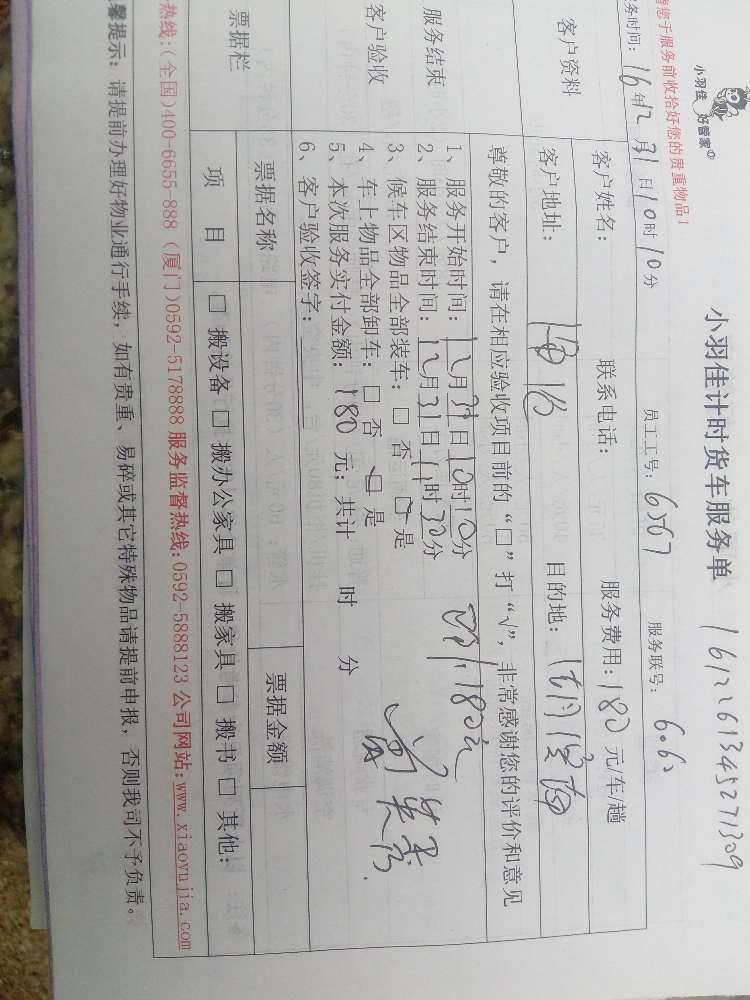 小羽佳 好管家
小羽佳计时货车服务单 16122613451271309
请您于服务前收拾好您的贵重物品！
务时间: 16年12月31日10时10分 员工工号: 6567 服务联号: 6.6
客户资料
客户姓名: 联系电话: 服务费用: 180元/车/趟
客户地址: 目的地:
尊敬的客户，请在相应验收项目前的“□”打“√”，非常感谢您的评价和意见
服务结束
客户验收
1、服务开始时间: 12月31日10时10分
2、服务结束时间: 12月31日11时30分
3、候车区物品全部装车: □ 否 □ 是
4、车上物品全部卸车: □ 否 □ 是
5、本次服务实付金额: 180元; 共计 时 分
6、客户验收签字:
180元
票据栏
票据名称 票据金额
项 目 □ 搬设备 □ 搬办公家具 □ 搬家具 □ 搬书 □ 其他:
热线:(全国)400-6655-888 (厦门)0592-5178888 服务监督热线:0592-5888123 公司网站:www.xiaoyujia.com
馨提示: 请提前办理好物业通行手续，如有贵重、易碎或其它特殊物品请提前申报，否则我司不予负责。